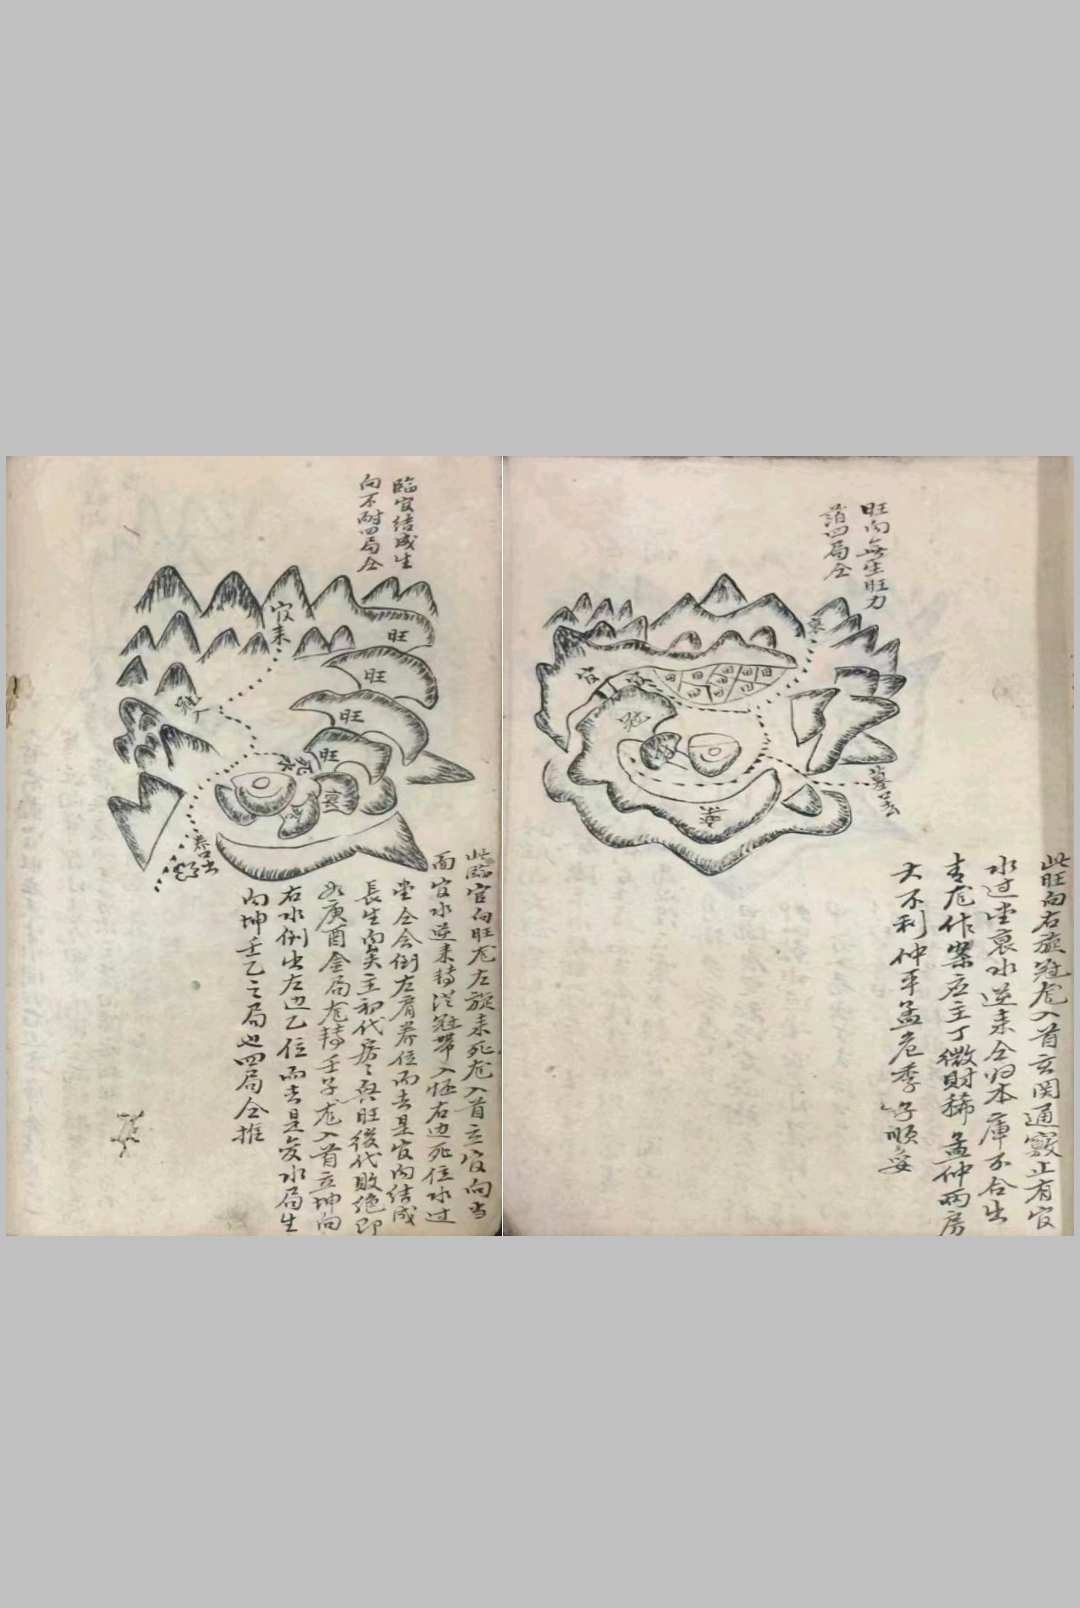 旺向無生旺力
諳四局仝
官
冠
衰
墓去
案
此旺向右旋冠尨入首玄関通竅止有官
水过堂衰水逆来仝归本庫不合出
青尨作案应主丁微財稀孟仲兩房
大不利仲平孟危季子順妥
臨官结成生
向不耐四局仝
官来
旺
旺
旺
旺
死
衰
冠
养口去
此臨官向旺尨左旋来死尨入首立官向当
面官水逆来轉从冠帶入怀右边死位水过
堂仝会倒左肩养位而去是官向结成
長生向矣主初代房々興旺後代敗绝即
如庚酉金局尨轉壬子尨入首立坤向
右水倒出左边乙位而去是变水局生
向坤壬乙之局也四局仝推